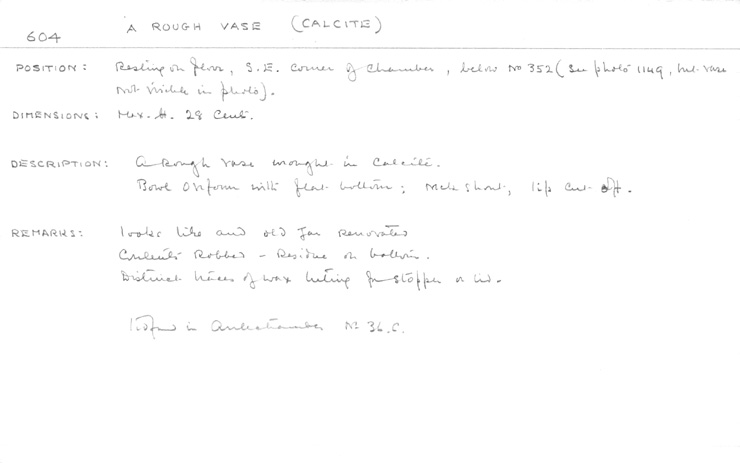 604
A ROUGH VASE (CALCITE)
POSITION: Resting on floor, S.E. corner of Chamber, below No 352 (See photo 1149, but vase
not visible in photo).
DIMENSIONS: Max. H. 28 Cent.
DESCRIPTION: A Rough vase wrought in Calcite.
Bowl Oviform with flat bottom; neck short, lip cut off.
REMARKS: looks like and old Jar renovated
Contents Robbed - Residue on bottom.
Distinct traces of wax luting for stopper or lid.
in Antechamber No 36.C.